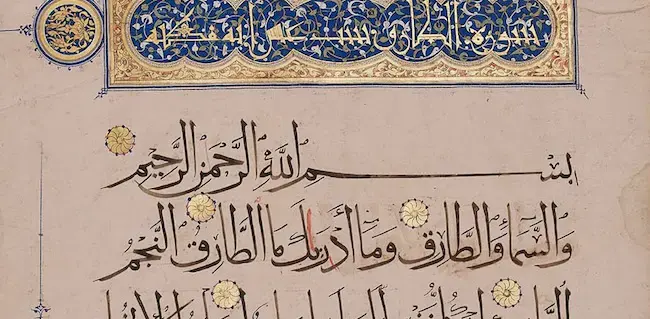 سورة الطارق ست عشر اية مكية
بِسْمِ اللَّهِ الرَّحْمَنِ الرَّحِيمِ
وَالسَّمَاءِ وَالطَّارِقِ وَمَا أَدْرَيكَ مَا الطَّارِقُ النَّجْمُ